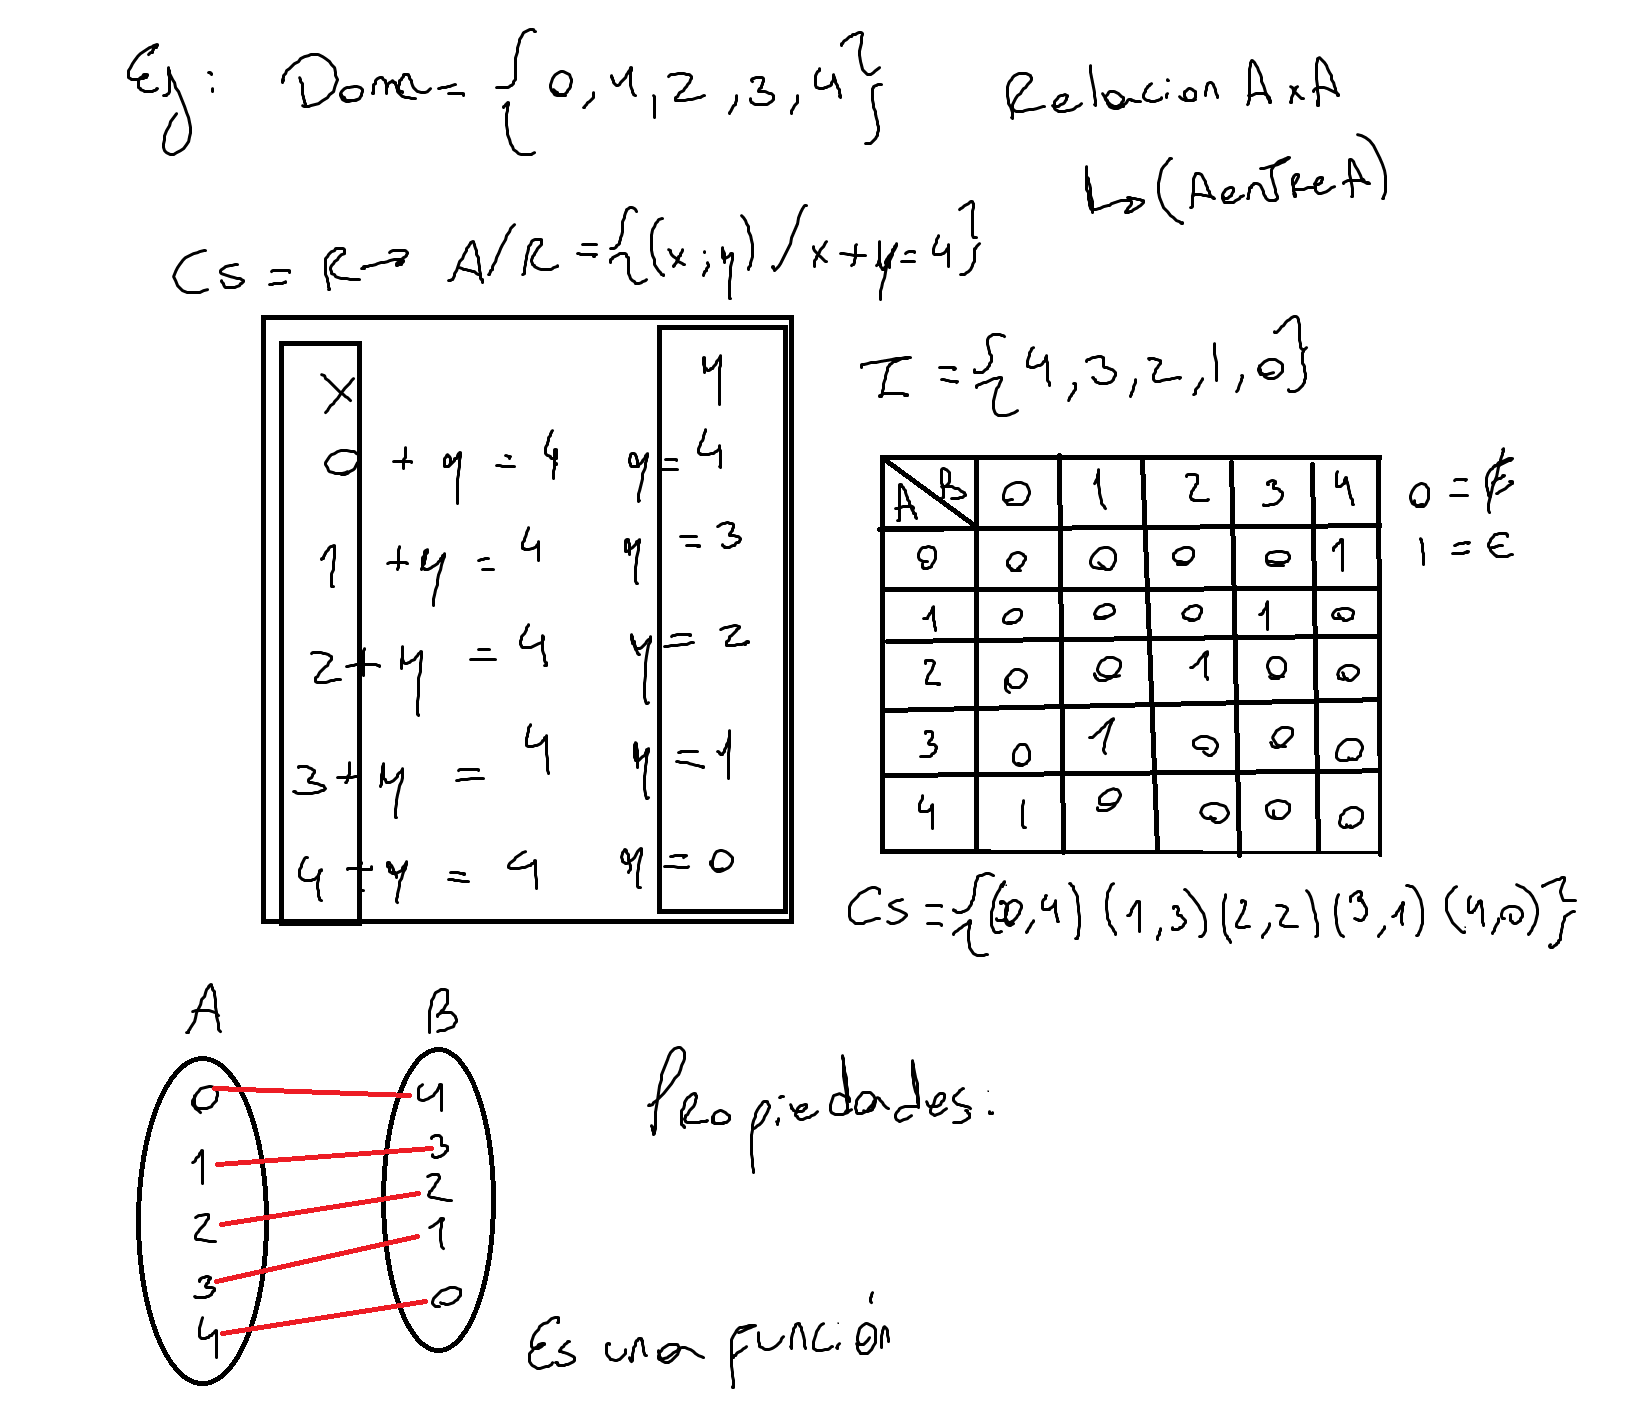 Ej: Dom = {0, 1, 2, 3, 4}
Relacion A x A
↳ (A entre A)
Cs = R → A/R = {(x; y) / x + y = 4}
x y
0 + y = 4 y = 4
1 + y = 4 y = 3
2 + y = 4 y = 2
3 + y = 4 y = 1
4 + y = 4 y = 0
I = {4, 3, 2, 1, 0}
A\B 0 1 2 3 4
0 0 0 0 0 1
1 0 0 0 1 0
2 0 0 1 0 0
3 0 1 0 0 0
4 1 0 0 0 0
0 = ∉
1 = ∈
Cs = {(0,4) (1,3) (2,2) (3,1) (4,0)}
A B
0 4
1 3
2 2
3 1
4 0
Propiedades:
Es una función